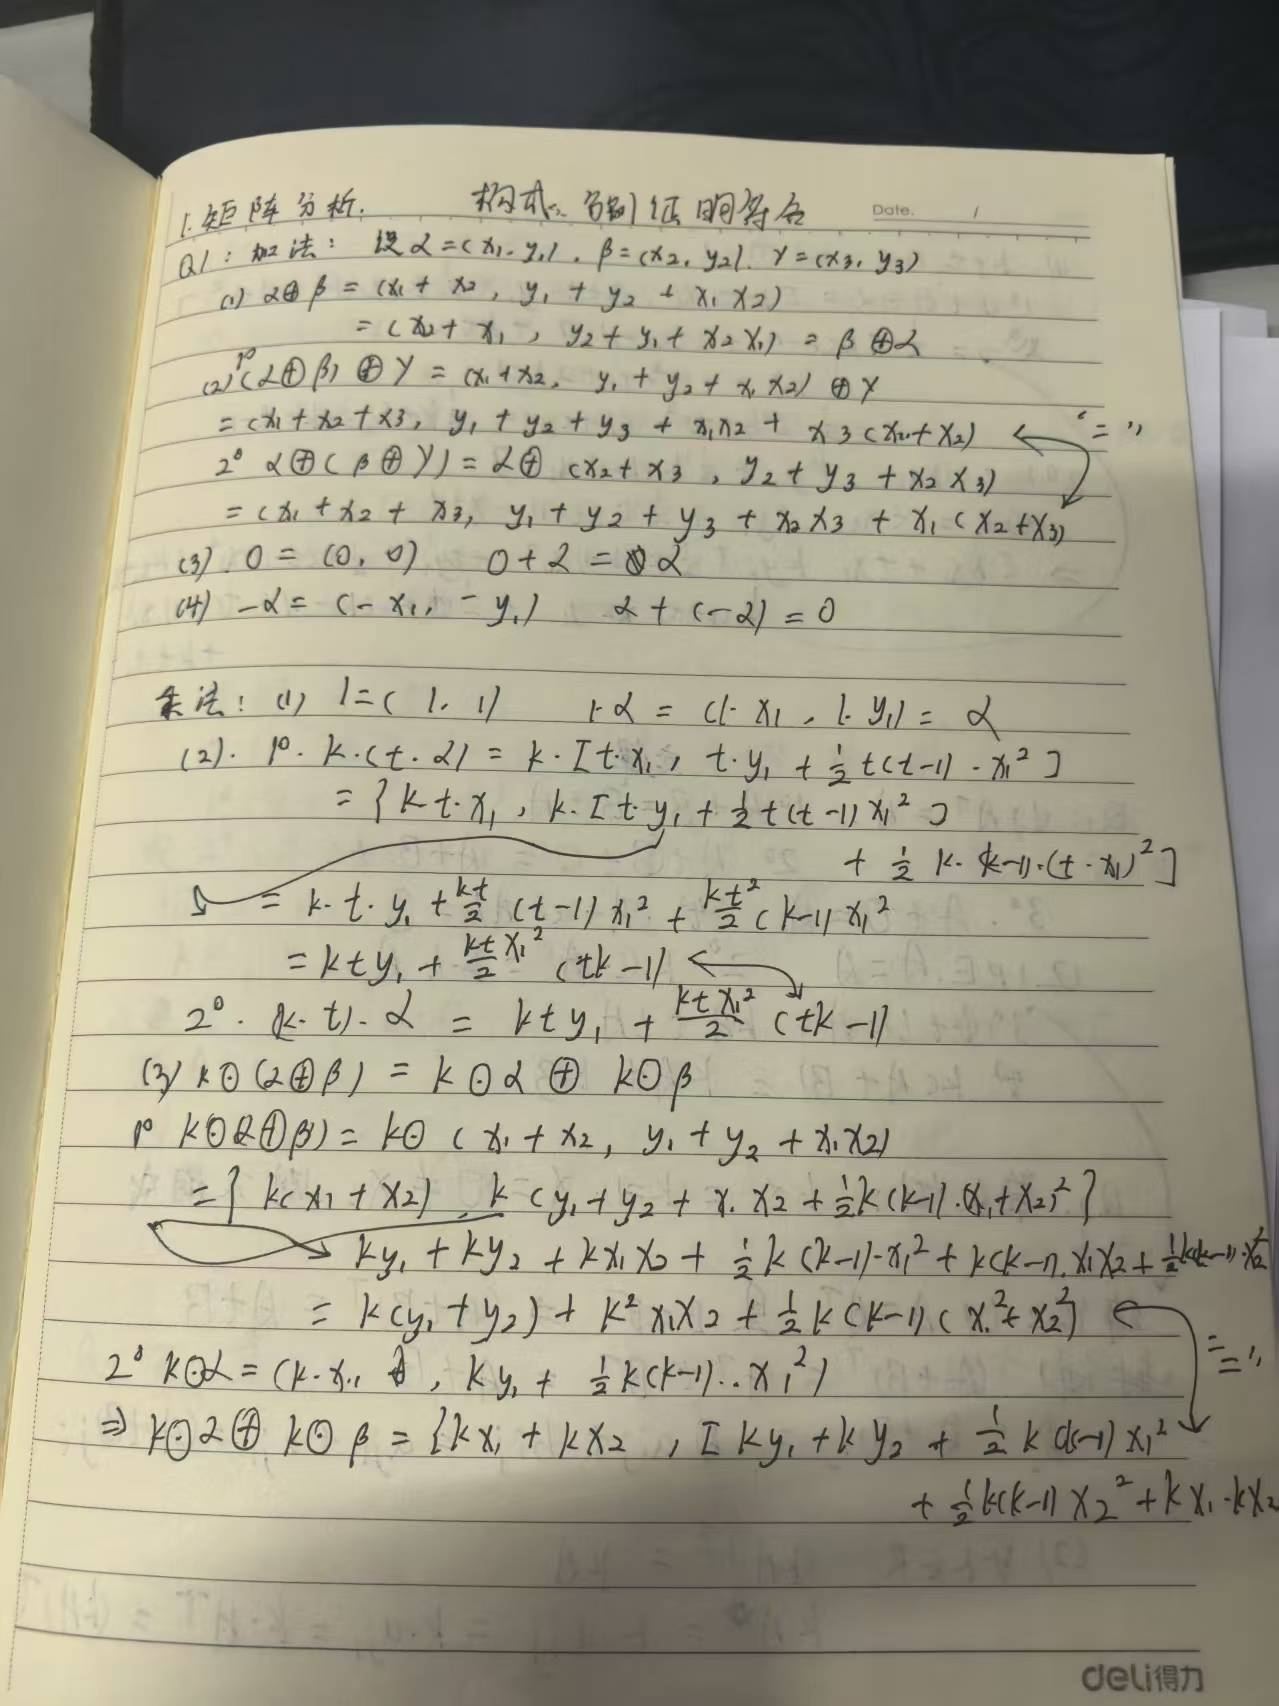 1. 矩阵分析.
Date. /
Q1: 加法: 设 α=(x₁, y₁), β=(x₂, y₂), γ=(x₃, y₃)
(1) α⊕β = (x₁ + x₂, y₁ + y₂ + x₁x₂)
= (x₂ + x₁, y₂ + y₁ + x₂x₁) = β⊕α
(2) 1° (α⊕β)⊕γ = (x₁+x₂, y₁ + y₂ + x₁x₂) ⊕ γ
= (x₁ + x₂ + x₃, y₁ + y₂ + y₃ + x₁x₂ + x₃(x₁+x₂) "="
2° α⊕(β⊕γ) = α⊕ (x₂ + x₃, y₂ + y₃ + x₂x₃)
= (x₁ + x₂ + x₃, y₁ + y₂ + y₃ + x₂x₃ + x₁(x₂+x₃)
(3). 0 = (0, 0) 0 + α = α
(4) -α = (-x₁, -y₁) α + (-α) = 0
乘法: (1) 1 = (1, 1) 1·α = (1·x₁, 1·y₁) = α
(2). 1°. k·(t·α) = k·[t·x₁, t·y₁ + ½t(t-1)·x₁²]
= {kt·x₁, k·[t·y₁ + ½t(t-1)x₁²]
+ ½ k·(k-1)·(t·x₁)²]
= k·t·y₁ + kt/2 (t-1)x₁² + kt²/2 (k-1)x₁²
= kty₁ + ktx₁²/2 (tk-1)
2°. (k·t)·α = kty₁ + ktx₁²/2 (tk-1)
(3) k⊙(α⊕β) = k⊙α ⊕ k⊙β
1° k⊙(α⊕β) = k⊙(x₁ + x₂, y₁ + y₂ + x₁x₂)
= {k(x₁ + x₂), k(y₁ + y₂ + x₁x₂ + ½k(k-1)·(x₁+x₂)²}
ky₁ + ky₂ + kx₁x₂ + ½k(k-1)·x₁² + k(k-1)·x₁x₂ + ½k(k-1)·x₂²
= k(y₁ + y₂) + k²x₁x₂ + ½k(k-1)(x₁² + x₂²) "="
2° k⊙α = (k·x₁, ky₁ + ½k(k-1)··x₁²)
⇒ k⊙α ⊕ k⊙β = {kx₁ + kx₂, [ky₁ + ky₂ + ½k(k-1)x₁²
+ ½k(k-1)x₂² + kx₁·kx₂
deli得力